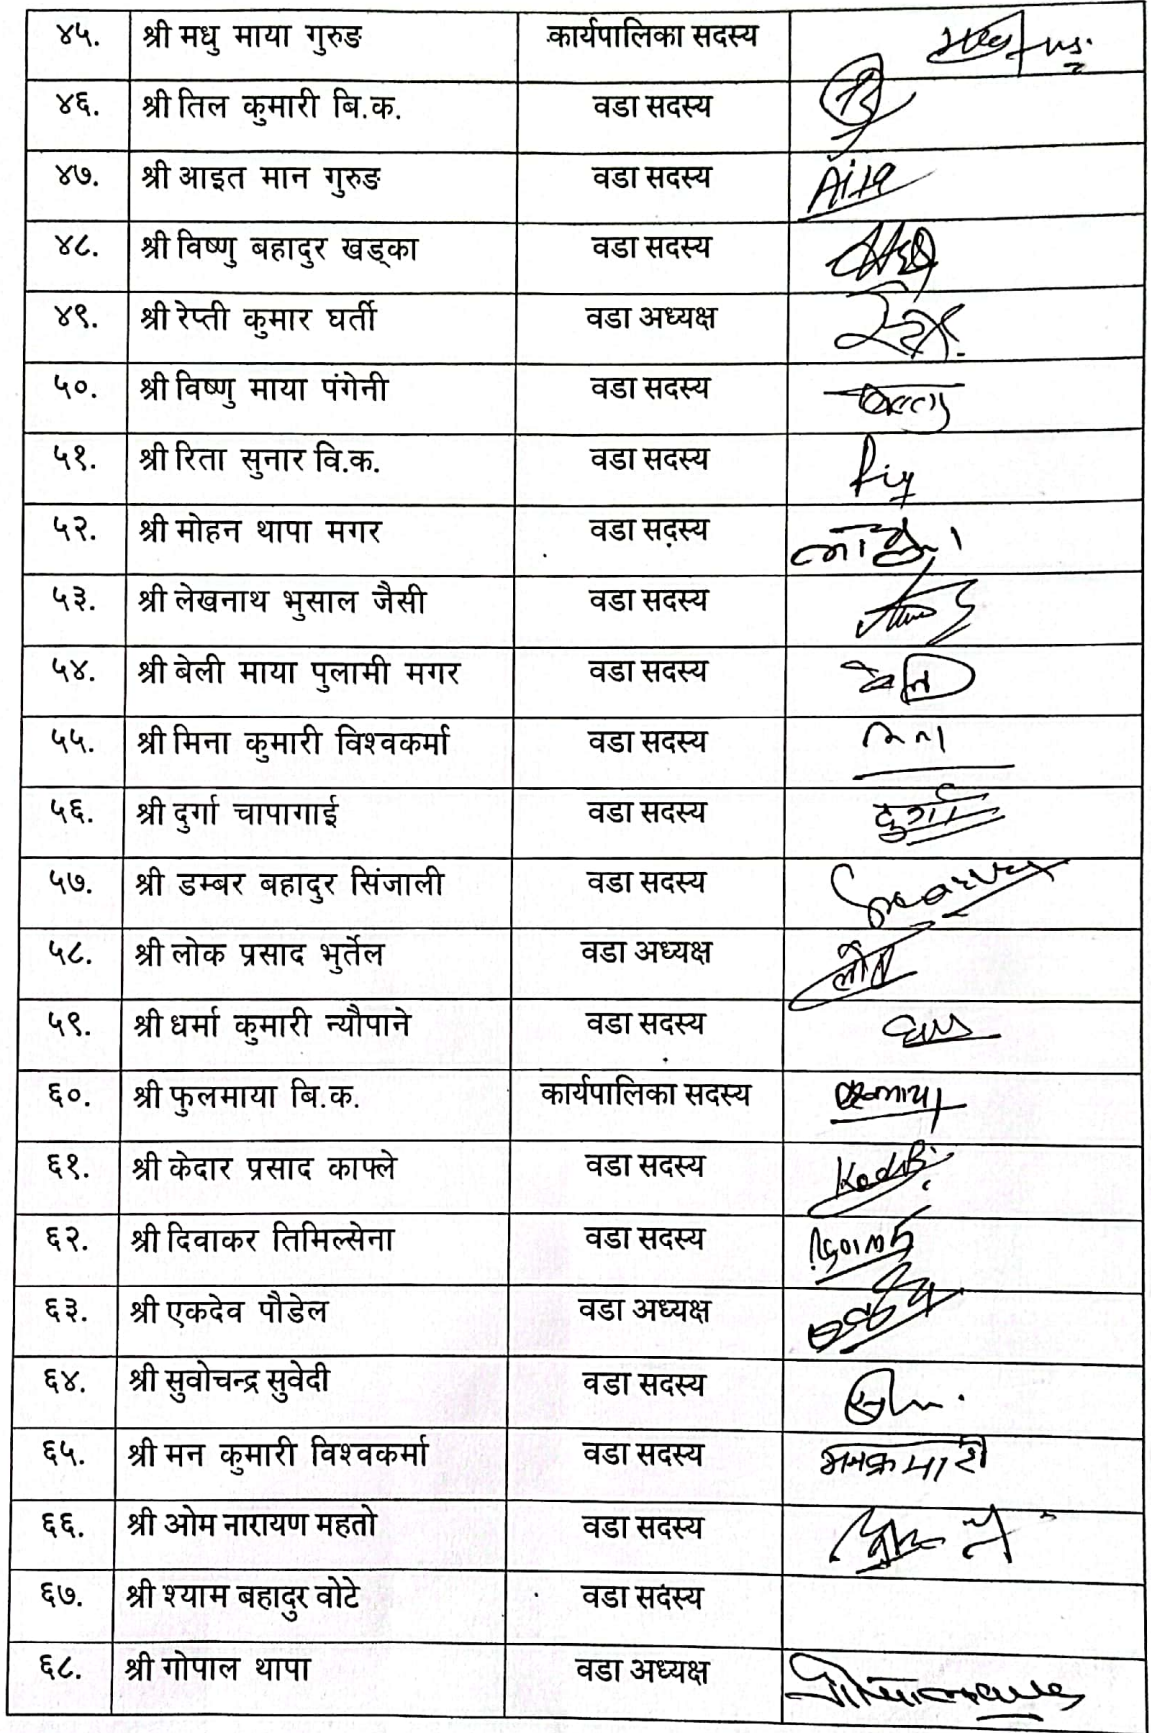 ४५. श्री मधु माया गुरुङ कार्यपालिका सदस्य
४६. श्री तिल कुमारी बि.क. वडा सदस्य
४७. श्री आइत मान गुरुङ वडा सदस्य Aita
४८. श्री विष्णु बहादुर खड्का वडा सदस्य
४९. श्री रेप्ती कुमार घर्ती वडा अध्यक्ष
५०. श्री विष्णु माया पंगेनी वडा सदस्य
५१. श्री रिता सुनार वि.क. वडा सदस्य
५२. श्री मोहन थापा मगर वडा सदस्य
५३. श्री लेखनाथ भुसाल जैसी वडा सदस्य
५४. श्री बेली माया पुलामी मगर वडा सदस्य
५५. श्री मिना कुमारी विश्वकर्मा वडा सदस्य
५६. श्री दुर्गा चापागाई वडा सदस्य दुर्गा
५७. श्री डम्बर बहादुर सिंजाली वडा सदस्य
५८. श्री लोक प्रसाद भुर्तेल वडा अध्यक्ष
५९. श्री धर्मा कुमारी न्यौपाने वडा सदस्य
६०. श्री फुलमाया बि.क. कार्यपालिका सदस्य
६१. श्री केदार प्रसाद काफ्ले वडा सदस्य
६२. श्री दिवाकर तिमिल्सेना वडा सदस्य
६३. श्री एकदेव पौडेल वडा अध्यक्ष
६४. श्री सुवोचन्द्र सुवेदी वडा सदस्य
६५. श्री मन कुमारी विश्वकर्मा वडा सदस्य मनकुमारी
६६. श्री ओम नारायण महतो वडा सदस्य
६७. श्री श्याम बहादुर वोटे वडा सदस्य
६८. श्री गोपाल थापा वडा अध्यक्ष